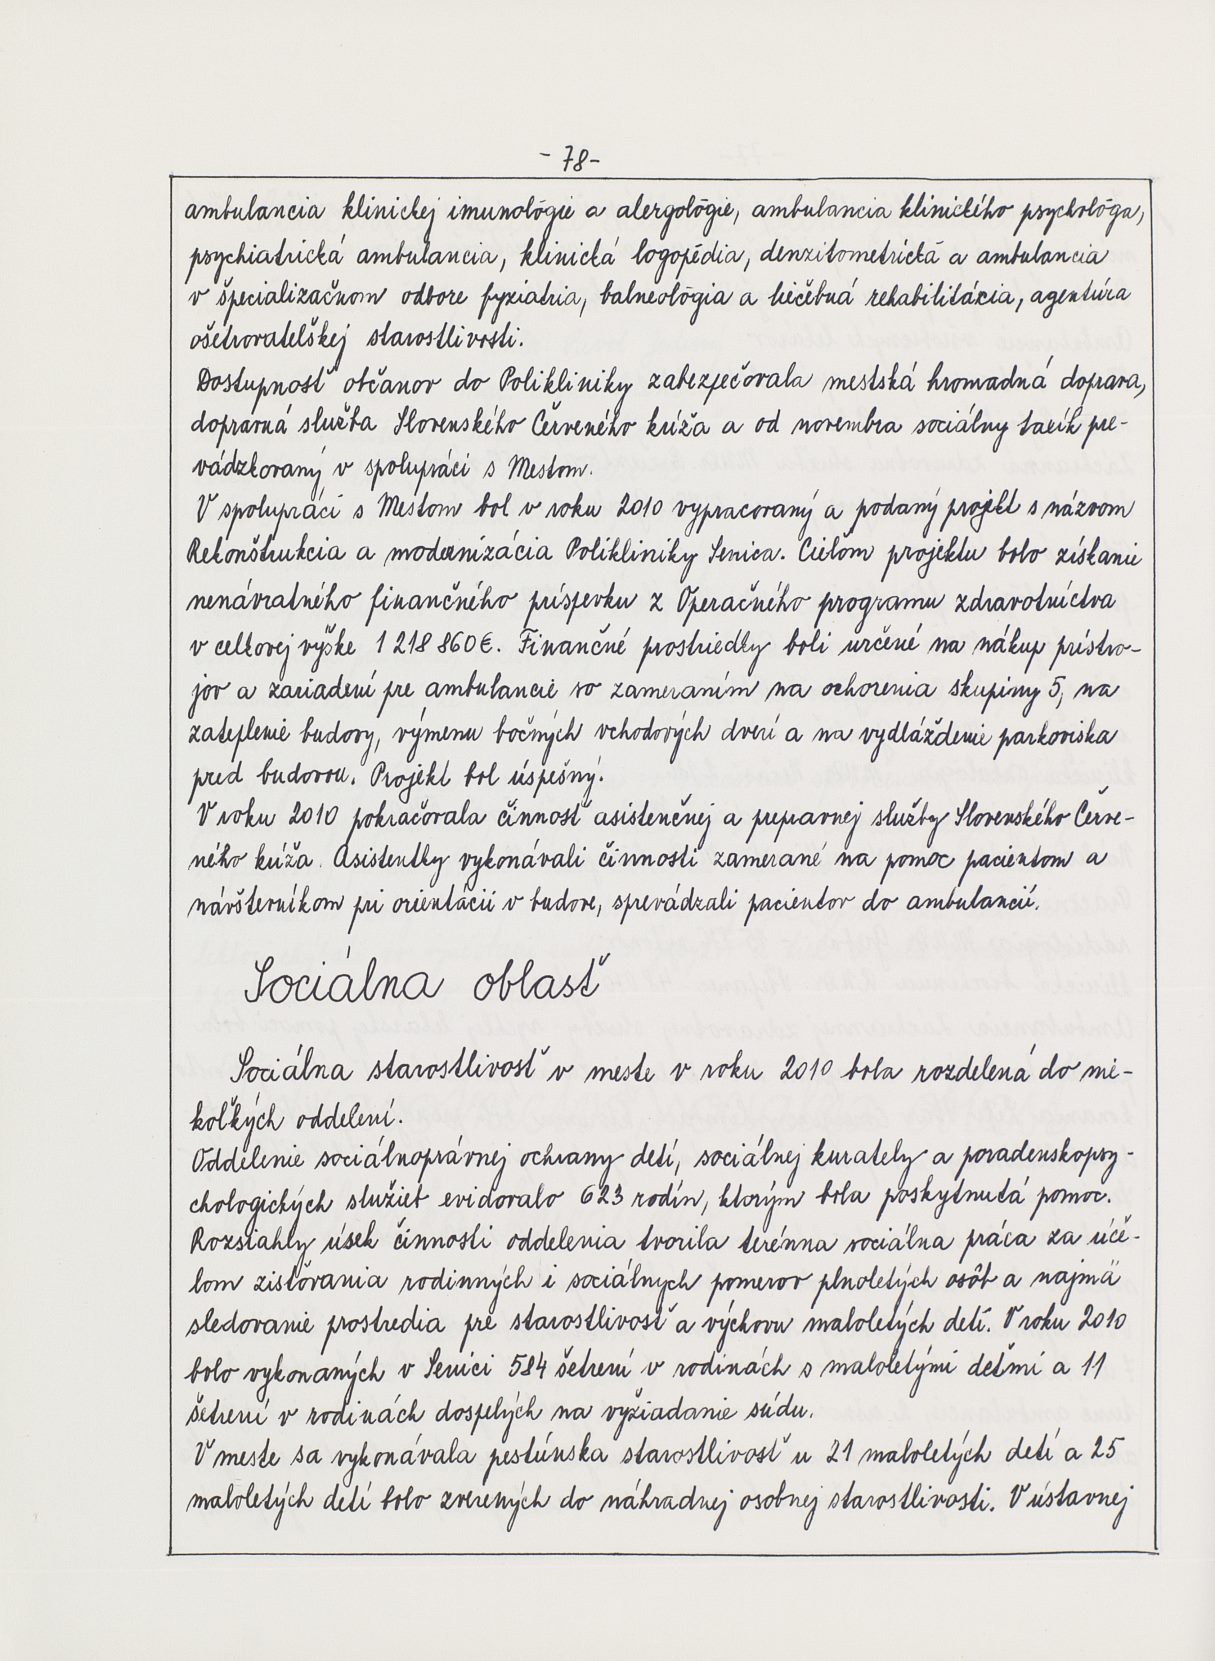 - 78 -
ambulancia klinickej imunológie a alergológie, ambulancia klinického psychológa,
psychiatrická ambulancia, klinická logopédia, denzitometrická a ambulancia
v špecializačnom odbore fyziatria, balneológia a liečebná rehabilitácia, agentúra
ošetrovateľskej starostlivosti.
Dostupnosť občanov do Polikliniky zabezpečovala mestská hromadná doprava,
dopravná služba Slovenského Červeného kríža a od novembra sociálny taxík pre-
vádzkovaný v spolupráci s Mestom.
V spolupráci s Mestom bol v roku 2010 vypracovaný a podaný projekt s názvom
Rekonštrukcia a modernizácia Polikliniky Senica. Cieľom projektu bolo získanie
nenávratného finančného príspevku z Operačného programu zdravotníctva
v celkovej výške 1 218 860 €. Finančné prostriedky boli určené na nákup prístro-
jov a zariadení pre ambulancie so zameraním na ochorenia skupiny 5, na
zateplenie budovy, výmenu bočných vchodových dverí a na vydláždenie parkoviska
pred budovou. Projekt bol úspešný.
V roku 2010 pokračovala činnosť asistenčnej a prepravnej služby Slovenského Červe-
ného kríža. Asistentky vykonávali činnosti zamerané na pomoc pacientom a
návštevníkom pri orientácii v budove, sprevádzali pacientov do ambulancií.
Sociálna oblasť
Sociálna starostlivosť v meste v roku 2010 bola rozdelená do nie-
koľkých oddelení.
Oddelenie sociálnoprávnej ochrany detí, sociálnej kurately a poradenskopsy-
chologických služieb evidovalo 623 rodín, ktorým bola poskytnutá pomoc.
Rozsiahly úsek činnosti oddelenia tvorila terénna sociálna práca za úče-
lom zisťovania rodinných i sociálnych pomerov plnoletých osôb a najmä
sledovanie prostredia pre starostlivosť a výchovu maloletých detí. V roku 2010
bolo vykonaných v Senici 584 šetrení v rodinách s maloletými deťmi a 11
šetrení v rodinách dospelých na vyžiadanie súdu.
V meste sa vykonávala pestúnska starostlivosť u 21 maloletých detí a 25
maloletých detí bolo zverených do náhradnej osobnej starostlivosti. V ústavnej